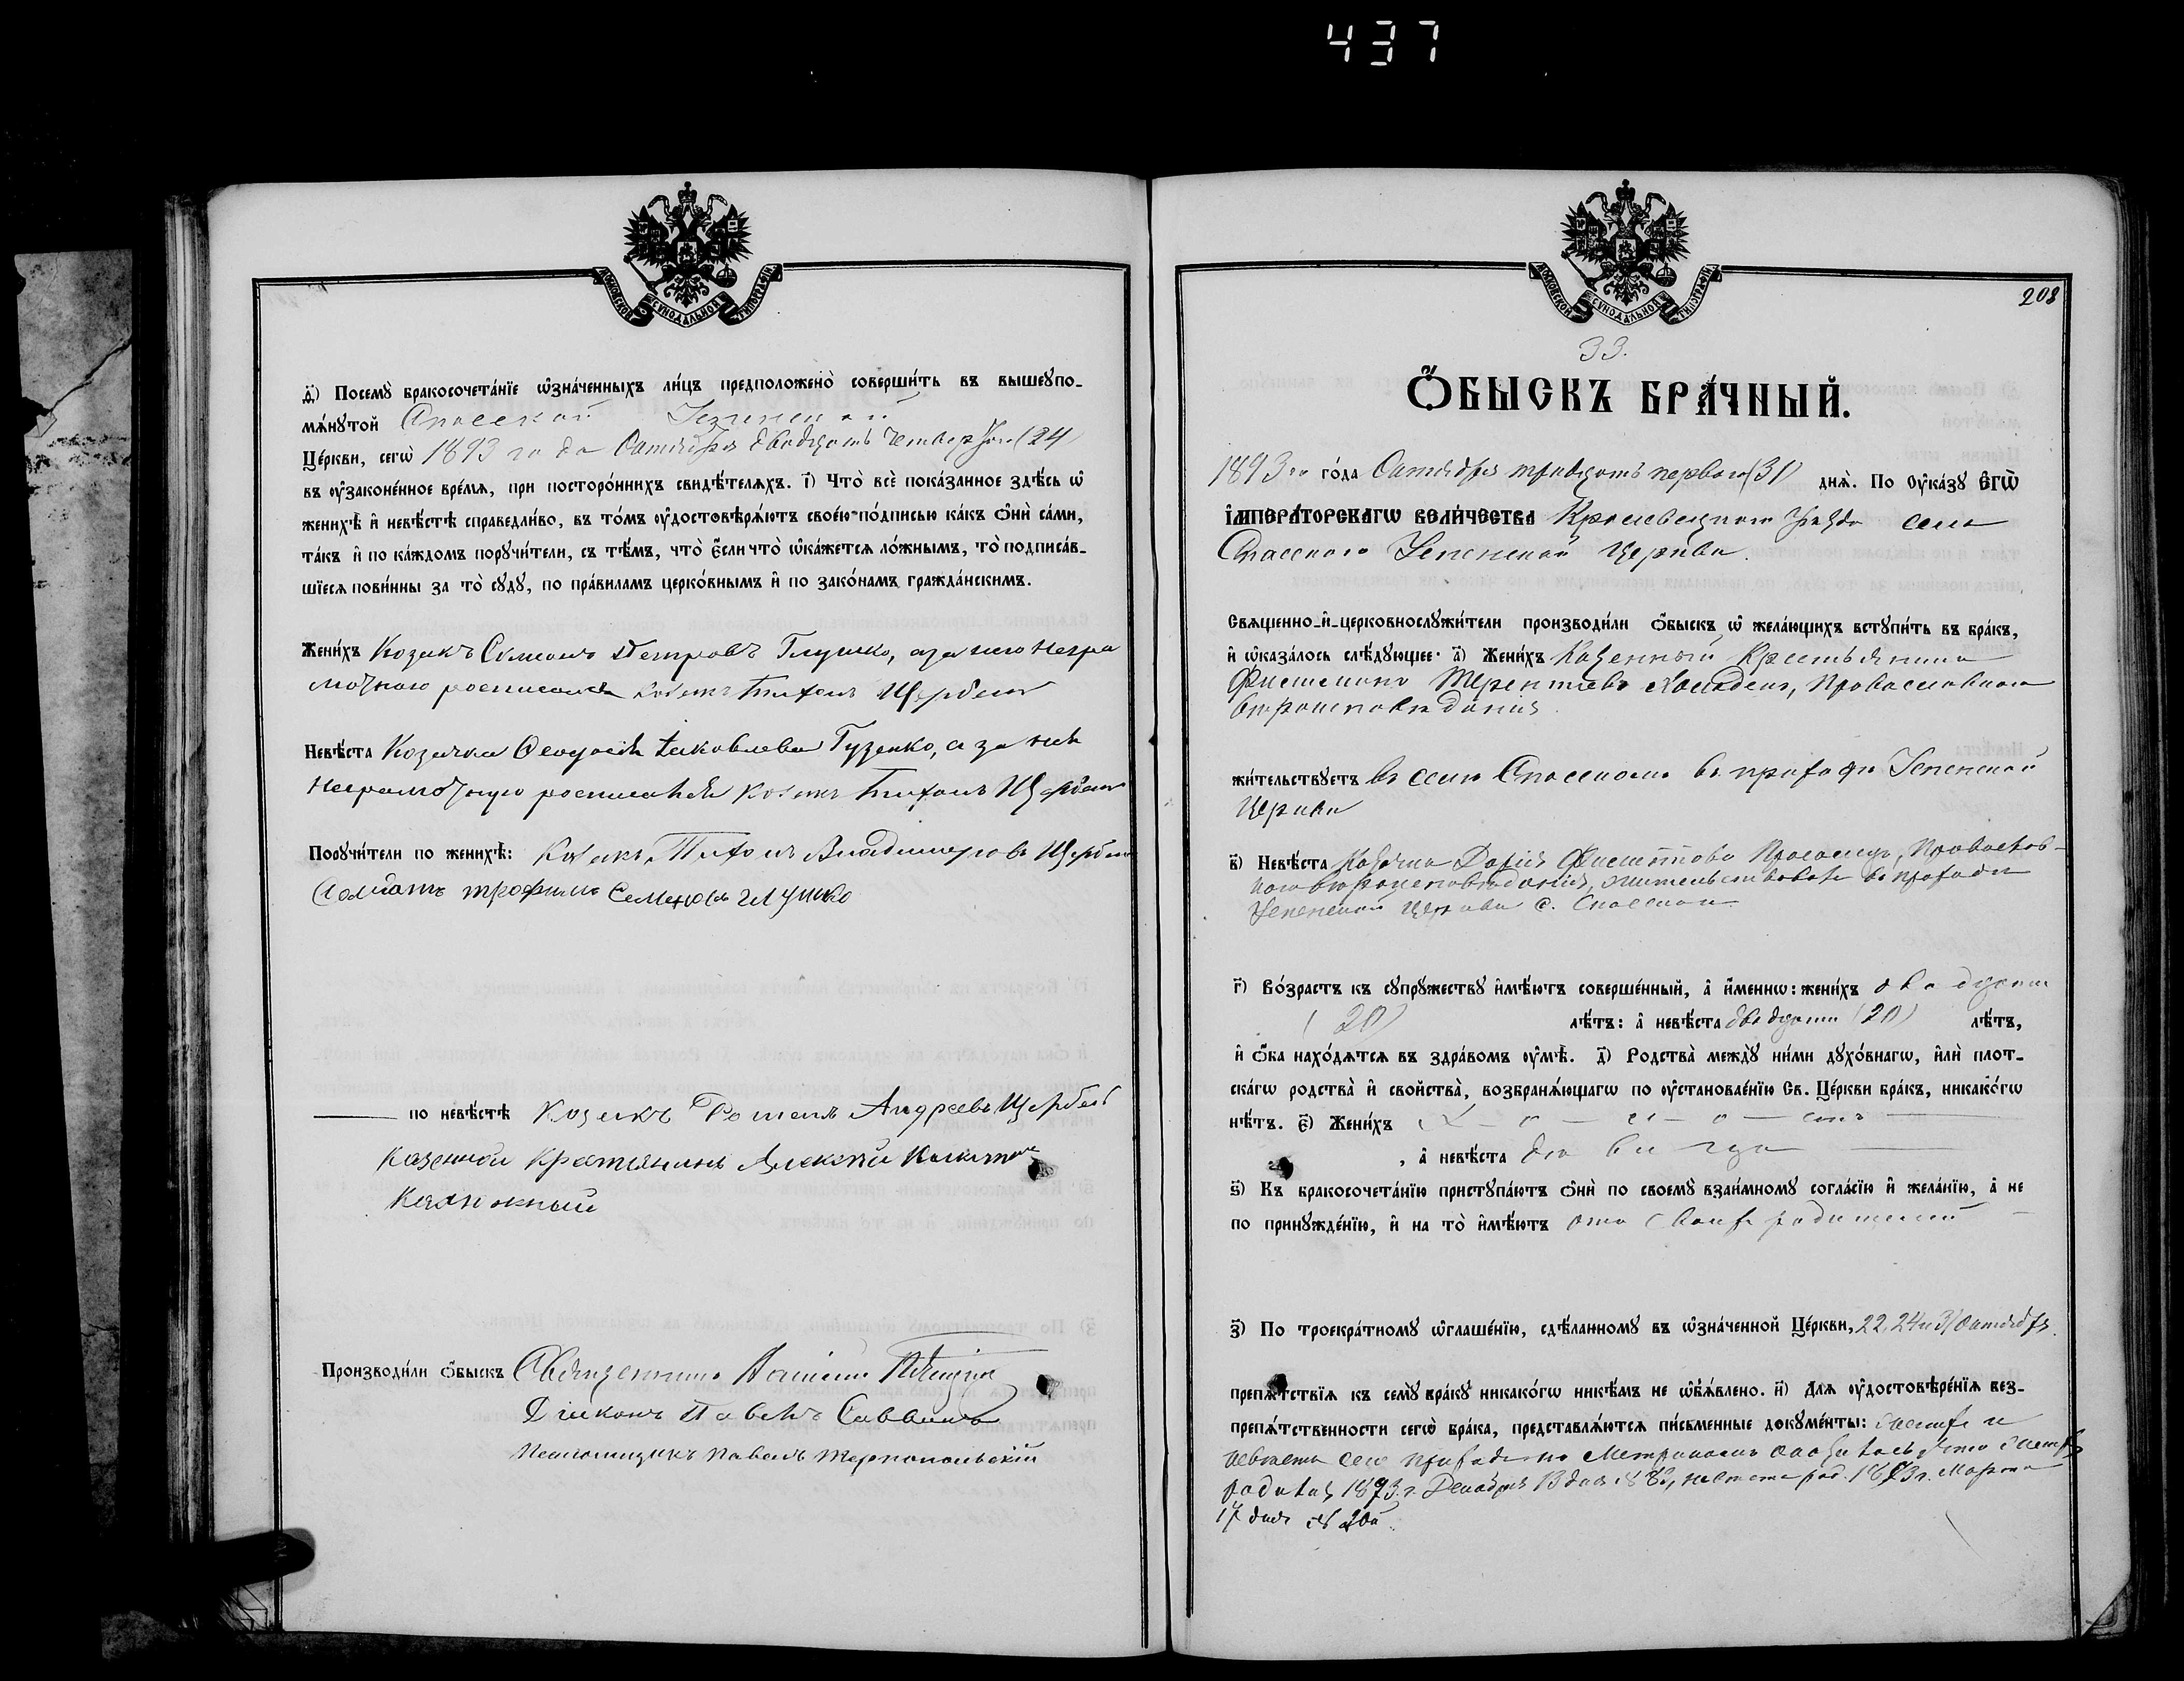 437
МОСКОВСКОЙ СѴНОДАЛЬНОЙ ТИПОГРАФІИ
д҃) Посемꙋ̀ бракосочета́нїе ѡ҆зна́ченныхъ ли́цъ предположено̀ соверши́ть въ вышеꙋпо-
мѧ́нꙋтой Спасской Успенской
Це́ркви, сегѡ̀ 1893 года Октября двадцать четвертого (24)
въ ѹ҆законе́нное вре́мѧ, при посторо́ннихъ свидѣ́телѧхъ. і҃) Что̀ всѐ пока́занное здѣ́сь ѡ҆
женихѣ̀ и҆ невѣ́стѣ справедли́во, въ то́мъ ѹ҆достовѣрѧ́ютъ свое́ю по́дписью ка́къ ѻ҆нѝ са́ми,
та́къ и҆ по ка́ждомъ порꙋчи́тели, съ тѣ́мъ, что̀ є҆́сли что̀ ѡ҆ка́жетсѧ ло́жнымъ, то̀ подписа́в-
шїесѧ пови́нны за то̀ сꙋдꙋ̀, по пра́виламъ церко́внымъ и҆ по зако́намъ гражда́нскимъ.
Жени́хъ Козакъ Симеонъ Петровъ Глушко, а за него негра
мотного росписался козакъ Тихонъ Щербакъ
Невѣ́ста Козачка Ѳеодосія Іаковлева Гузенко, а за нея
неграмотную росписался козакъ Тихонъ Щербакъ
Порꙋчи́тели по женихѣ̀: Козакъ Тихонъ Владимеровъ Щербакъ
Солдатъ трофимъ Семеновъ глушко
по невѣ́стѣ Козакъ Романъ Андреевъ Щербакъ
Казенной Крестянинъ Алексѣй
Производи́ли ѻ҆́быскъ Священникъ
Діаконъ Павелъ Саввинъ
Псаломщикъ Павелъ Тарнопольскій
208
МОСКОВСКОЙ СѴНОДАЛЬНОЙ ТИПОГРАФІИ
33.
Ѻ҆́БЫСКЪ БРА́ЧНЫЙ.
1893 го го́да Октября тридцать первого (31) днѧ̀. По ѹ҆ка́зꙋ Є҆ГѠ̀
І҆МПЕРА́ТОРСКАГѠ ВЕЛИ́ЧЕСТВА Кролевецкаго Уѣзда села
Спасского Успенской Церкви.
Свѧще́нно-и҆-церковнослꙋжи́тели производи́ли ѻ҆́быскъ ѡ҆ жела́ющихъ встꙋпи́ть въ бра́къ,
и҆ ѡ҆каза́лось слѣ́дꙋющее: а҃) Жени́хъ Казенный Крестьянинъ
Терентіевъ Православного
вѣроисповѣданія.
жи́тельствꙋетъ въ селѣ Спасскомъ въ приходѣ Успенской
Церкви
в҃) Невѣ́ста Козачка Дарія Православ-
ного вѣроисповѣданія, жительствовала въ приходѣ
Успенской Церкви с. Спасского.
г҃) Во́зрастъ къ сꙋпрꙋ́жествꙋ и҆мѣ́ютъ соверше́нный, а҆ и҆́менно: жени́хъ двадцать
(20) лѣ́тъ: а҆ невѣ́ста двадцати (20) лѣ́тъ,
и҆ ѻ҆́ба нахо́дѧтсѧ въ здра́вомъ ѹ҆мѣ̀. д҃) Родства̀ междꙋ̀ ни́ми дꙋхо́внагѡ, и҆лѝ плот-
ска́гѡ родства̀ и҆ свойства̀, возбранѧ́ющагѡ по ѹ҆становле́нїю Св. Це́ркви бра́къ, никако́гѡ
нѣ́тъ. є҃) Жени́хъ х — о — л — о — стъ
, а҆ невѣ́ста дѣвица
ѕ҃) Къ бракосочета́нїю пристꙋпа́ютъ ѻ҆нѝ по своемꙋ̀ взаи́мномꙋ согла́сїю и҆ жела́нїю, а҆ не
по принꙋжде́нїю, и҆ на то̀ и҆мѣ́ютъ отъ своихъ родителей
з҃) По троекра́тномꙋ ѡ҆глаше́нїю, сдѣ́ланномꙋ въ ѡ҆зна́ченной Це́ркви, 22, 24 и 31 Октября
препѧ́тствїѧ къ семꙋ̀ бра́кꙋ никако́гѡ никѣ́мъ не ѡ҆б̾ѧ́влено. и҃) Длѧ ѹ҆достовѣре́нїѧ без-
препѧ́тственности сегѡ̀ бра́ка, представлѧ́ютсѧ пи́сьменные докꙋме́нты: Женихъ и
невѣста сего прихода по Метрикамъ оказалось что женихъ
родился 1873 г. Декабря 13 дня № 83, невѣста род. 1873 г. Марта
17 дня №